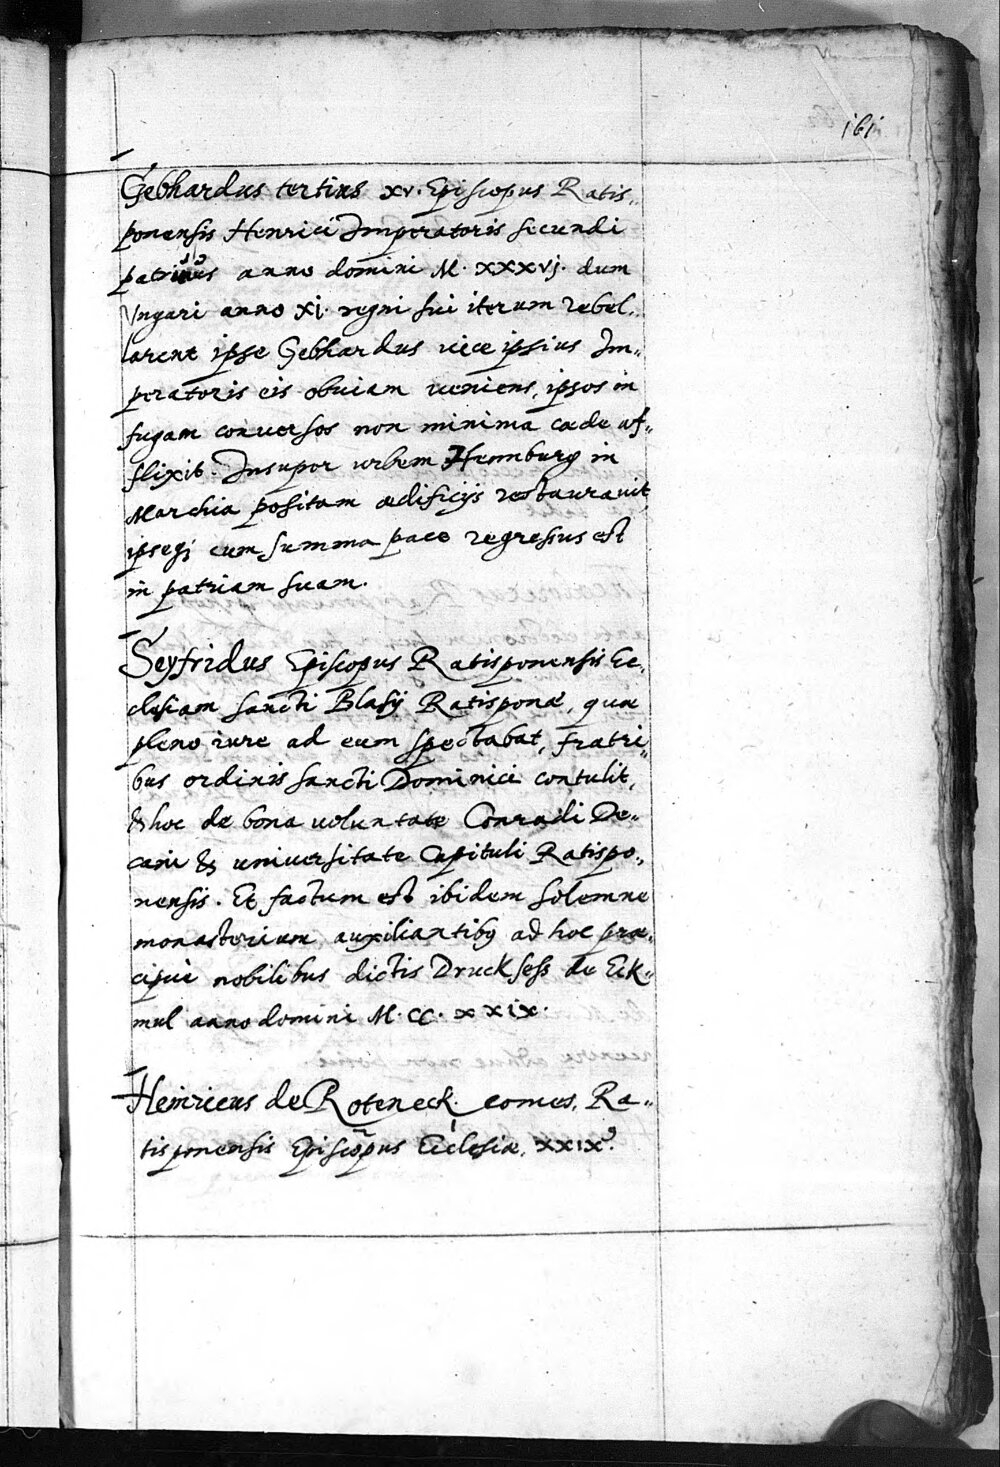 161
Gebhardus tertius xv. Episcopus Ratis„
ponensis Henrici Imperatoris secundi
patruus anno domini M. xxxvj. dum
Vngari anno xj. regni sui iterum rebel„
larent ipse Gebhardus vice ipsius Im„
peratoris eis obuiam veniens, ipsos in
fugam conuersos non minima cæde af„
flixit. Insuper vrbem Hennburg in
Marchia positam ædificijs restaurauit,
ipseq; cum summa pace regressus est
in patriam suam.
Seyfridus Episcopus Ratisponensis Ec„
clesiam sancti Blasij Ratisponæ, quæ
pleno iure ad eum spectabat, fratri„
bus ordinis sancti Dominici contulit,
& hoc de bona voluntate Conradi De„
cani & vniuersitate Capituli Ratispo„
nensis. Et factum est ibidem solemne
monasterium auxiliantibq ad hoc præ„
cipuè nobilibus dictis Drucksess de Eck„
mul anno domini M. CC. xxix.
Heinricus de Roteneck comes, Ra„
tisponensis Episcopus Ecclesiæ, xxix⁹.